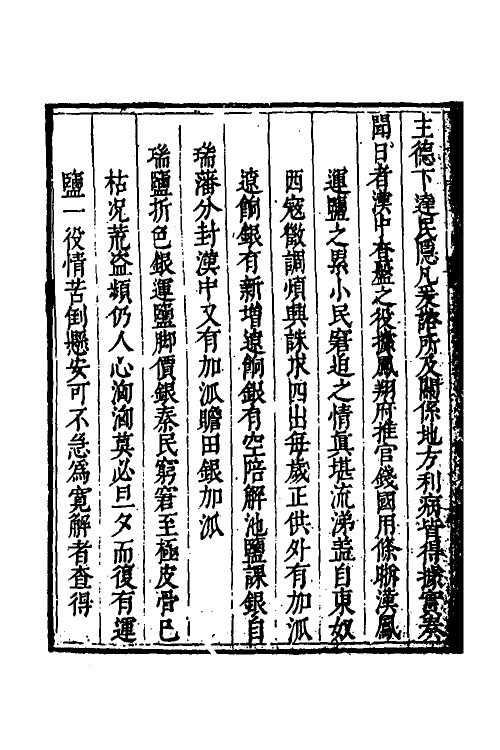 主德下達民隱凡奏諮所及關係地方利病皆得據實奏
聞日者漢中查鹽之役據鳳翔府推官錢國用條聯漢鳳
運鹽之累小民窘迫之情真堪流涕葢自東奴
西寇徵調煩興誅求四出每歲正供外有加派
遼餉銀有新增遼餉銀有空陪解池鹽課銀自
瑞藩分封漢中又有加派贍田銀加派
瑞鹽折色銀運鹽脚價銀秦民窮窘至極皮骨已
枯况荒盗頻仍人心洶洶莫必旦夕而復有運
鹽一役情苦倒懸安可不急爲寬解者查得